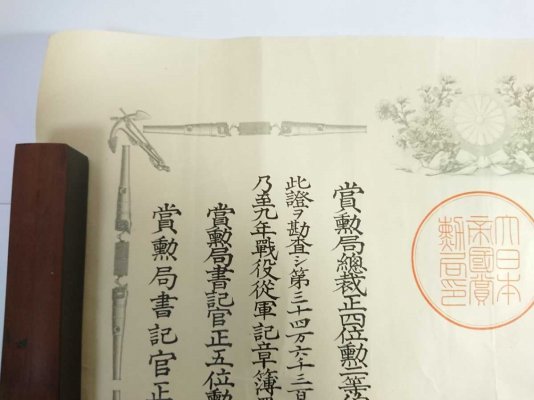 大日本
帝國賞
勲局印
賞勲局總裁正四位勲一等
此證ヲ勘査シ第三十四万六千三百
乃至九年戰役從軍記章簿
賞勲局書記官正五位勲
賞勲局書記官正